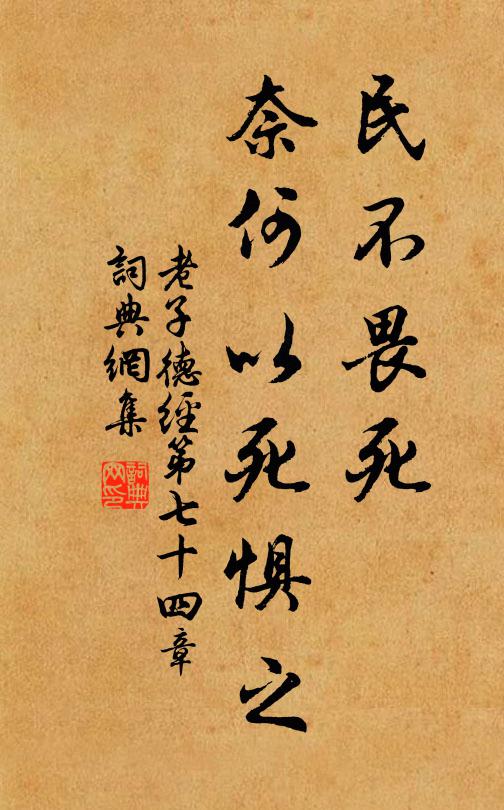 民不畏死
奈何以死惧之
老子德經第七十四章
詞典網集
詞典网印